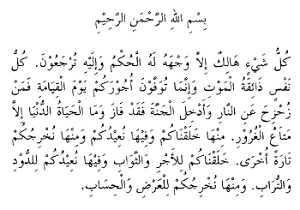 بِسْمِ اللهِ الرَّحْمَنِ الرَّحِيْمِ
كُلُّ شَيْءٍ هَالِكٌ إِلاَّ وَجْهَهُ لَهُ الْحُكْمُ وَإِلَيْهِ تُرْجَعُوْنَ. كُلُّ
نَفْسٍ ذَائِقَةُ الْمَوْتِ وَإِنَّمَا تُوَفَّوْنَ أُجُوْرَكُمْ يَوْمَ الْقِيَامَةِ فَمَنْ
زُحْزِحَ عَنِ النَّارِ وَأُدْخِلَ الْجَنَّةَ فَقَدْ فَازَ وَمَا الْحَيَاةُ الدُّنْيَا إِلاَّ
مَتَاعُ الْغُرُوْرِ. مِنْهَا خَلَقْنَاكُمْ وَفِيْهَا نُعِيْدُكُمْ وَمِنْهَا نُخْرِجُكُمْ
تَارَةً أُخْرَى. خَلَقْنَاكُمْ لِلأَجْرِ وَالثَّوَابِ وَفِيْهَا نُعِيْدُكُمْ لِلدُّوْدِ
وَالتُّرَابِ. وَمِنْهَا نُخْرِجُكُمْ لِلْعَرْضِ وَالْحِسَابِ.